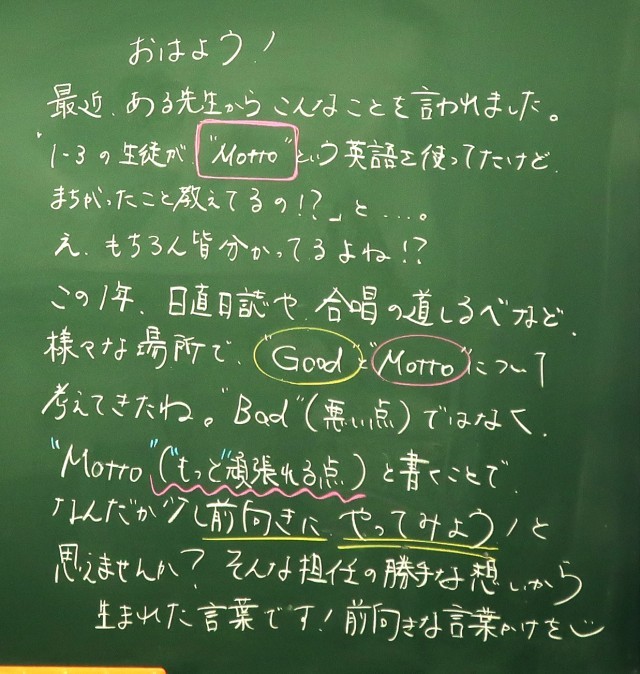 おはよう!
最近、ある先生からこんなことを言われました。
「1-3の生徒が、"Motto"という英語を使ってたけど、
まちがったこと教えてるの!?」と....。
え、もちろん皆分かってるよね!?
この1年、日直日誌や、合唱の道しるべなど、
様々な場所で、"Good"と"Motto"について
考えてきたね。"Bad"(悪い点)ではなく、
"Motto"("もっと"頑張れる点)と書くことで、
なんだか少し前向きに、やってみよう!と
思えませんか?そんな担任の勝手な想いから
生まれた言葉です!前向きな言葉かけを